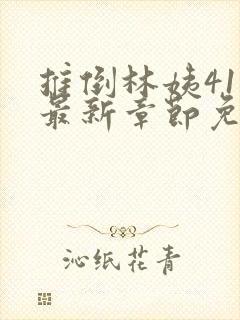 推倒林姨41
最新章节免
沁纸花青